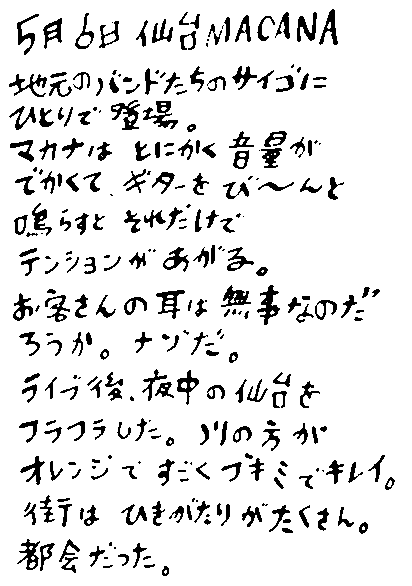 5月6日 仙台MACANA
地元のバンドたちのサイゴに
ひとりで登場。
マカナは とにかく 音量が
でかくて、ギターを び〜んと
鳴らすと それだけで
テンションが あがる。
お客さんの耳は無事なのだ
ろうか。ナゾだ。
ライブ後、夜中の仙台を
フラフラした。川の方が
オレンジで すごくブキミでキレイ。
街は ひきがたりがたくさん。
都会だった。